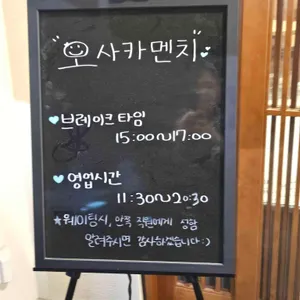 "오사카멘치"
브레이크 타임
15:00~17:00
영업시간
11:30~20:30
★웨이팅시, 안쪽 직원에게 성함
알려주시면 감사하겠습니다:)